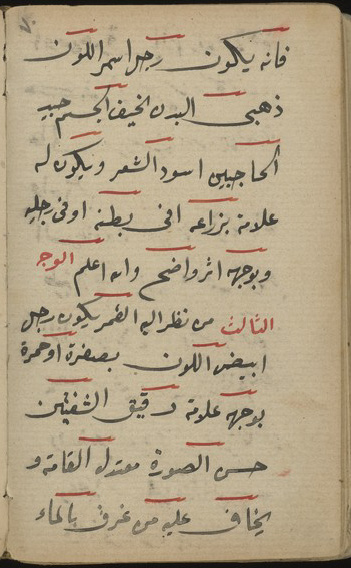 ٧
فانه يكون رجل اسمر اللون
ذهبى البدن نحيف الجسم
الحاجبين اسود الشعر ويكون له
علامة بزراعه افى بطنه اوفى رجليه
وبوجهه اثر واضح واله اعلم الوجه
الثالث من نظر اليه القمر يكون رجل
ابيض اللون بصفرة اوحمرة
بوجهه علامة رقيق الشفتين
حسن الصورة معتدل القامة و
يخاف عليه من غرق بالماء